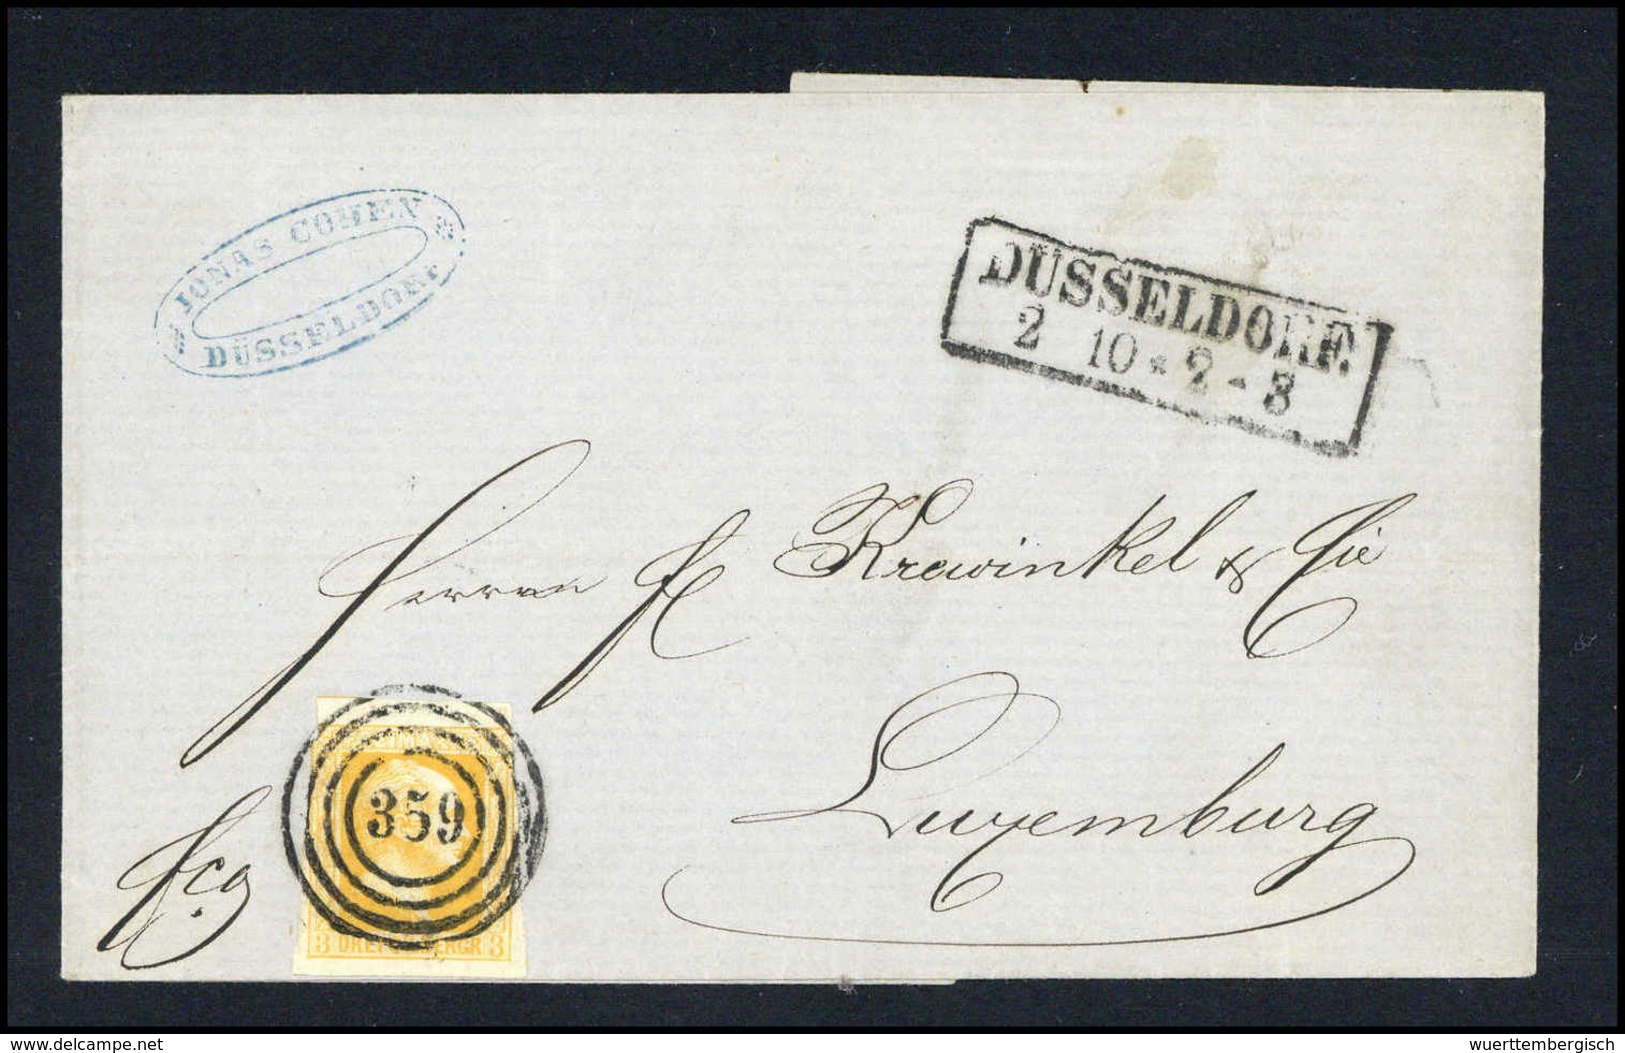 JONAS COHEN
DÜSSELDORF
DÜSSELDORF.
2 10 * 2 - 3
Herren F. Krawinkel & Cie
Luxemburg
fco
359
3 DREI SILBERGR 3
© www.delcampe.net
wuerttembergisch